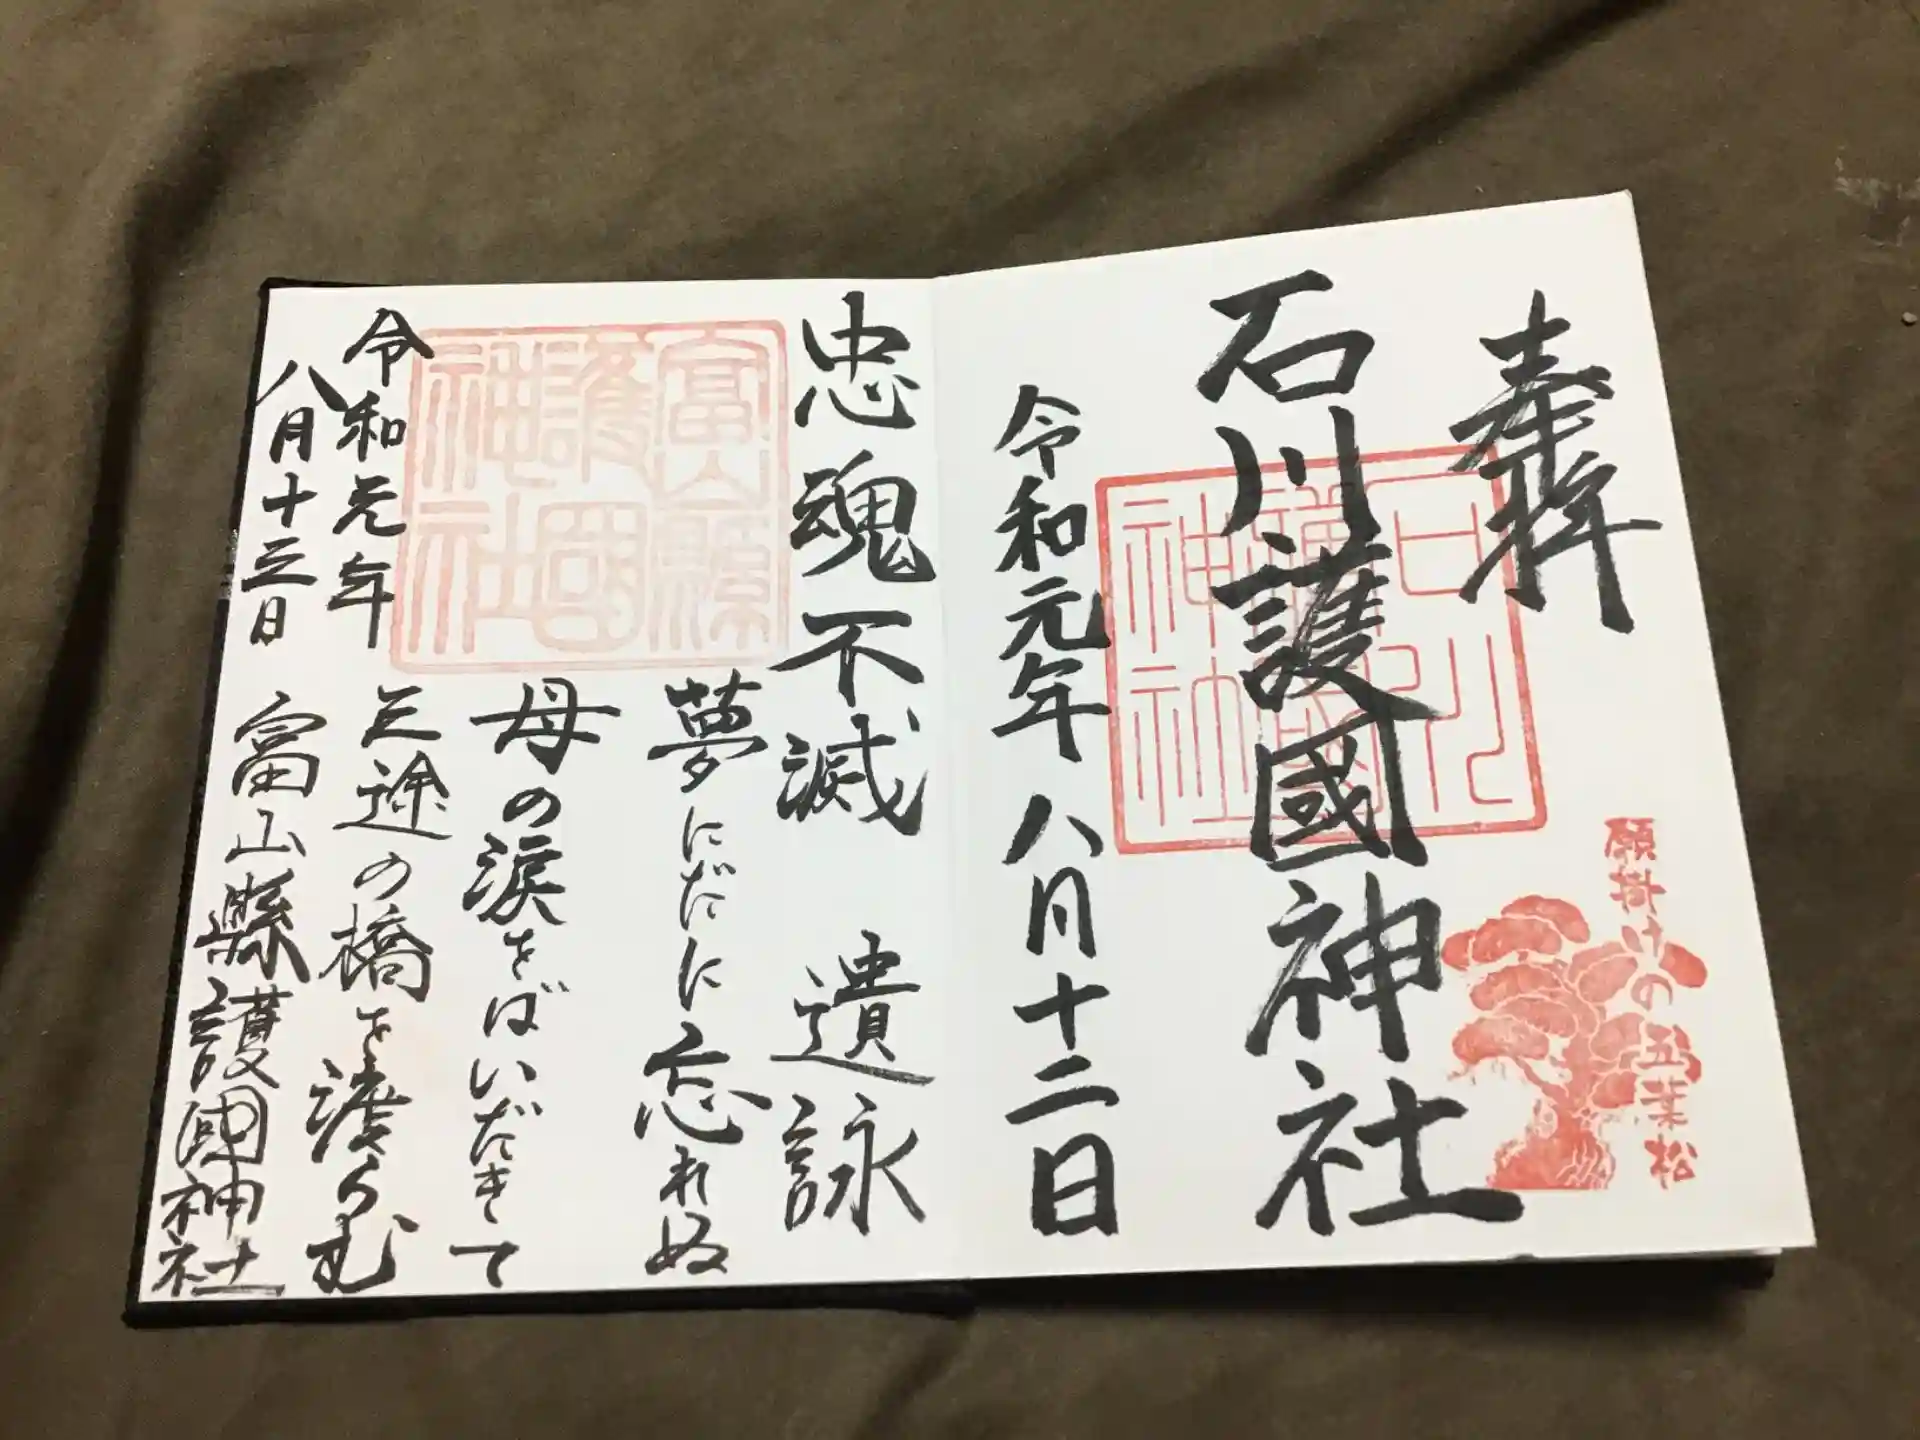 奉拝
石川護國神社
令和元年八月十二日
石川護國神社
願掛けの五葉松
忠魂不滅 遺詠
夢にだに忘れぬ
母の涙をばいだきて
三途の橋を渡らむ
富山縣護國神社
令和元年
八月十三日
富山縣護國神社